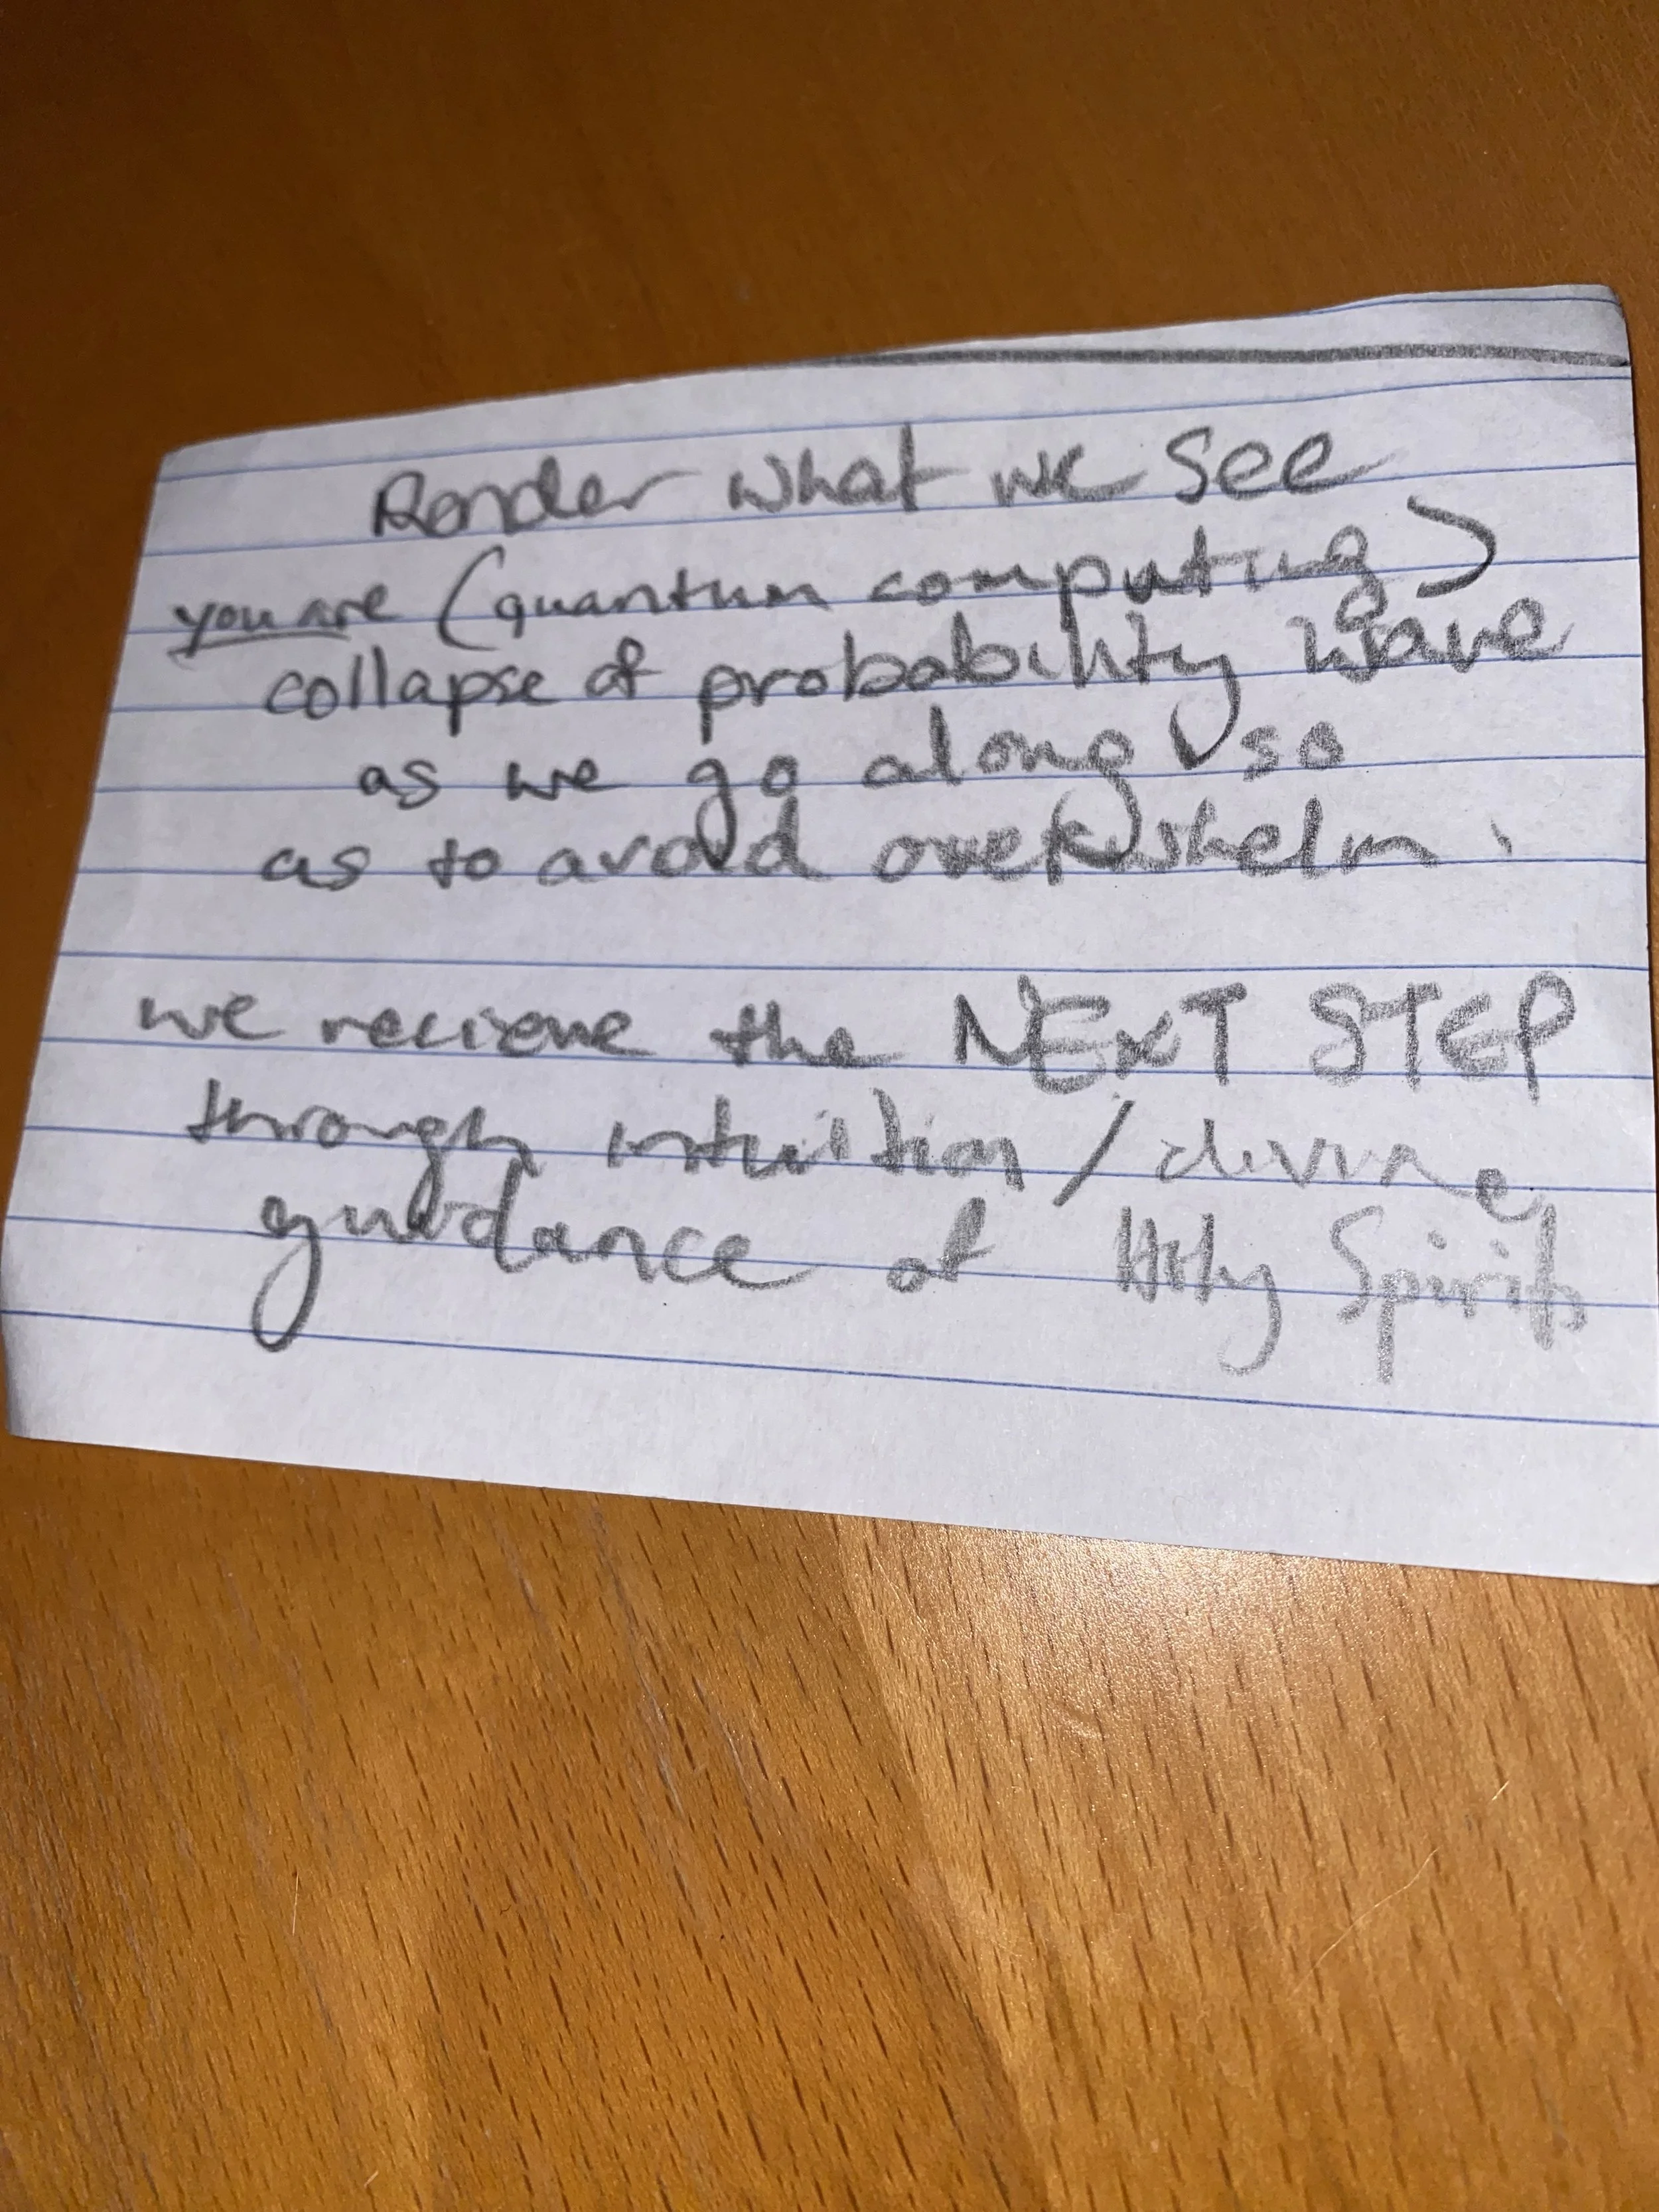 Render what we see
you are (quantum computing)
collapse of probability wave
as we go along so
as to avoid overwhelm.
we recieve the NEXT STEP
through intuition / divine
guidance of Holy Spirit